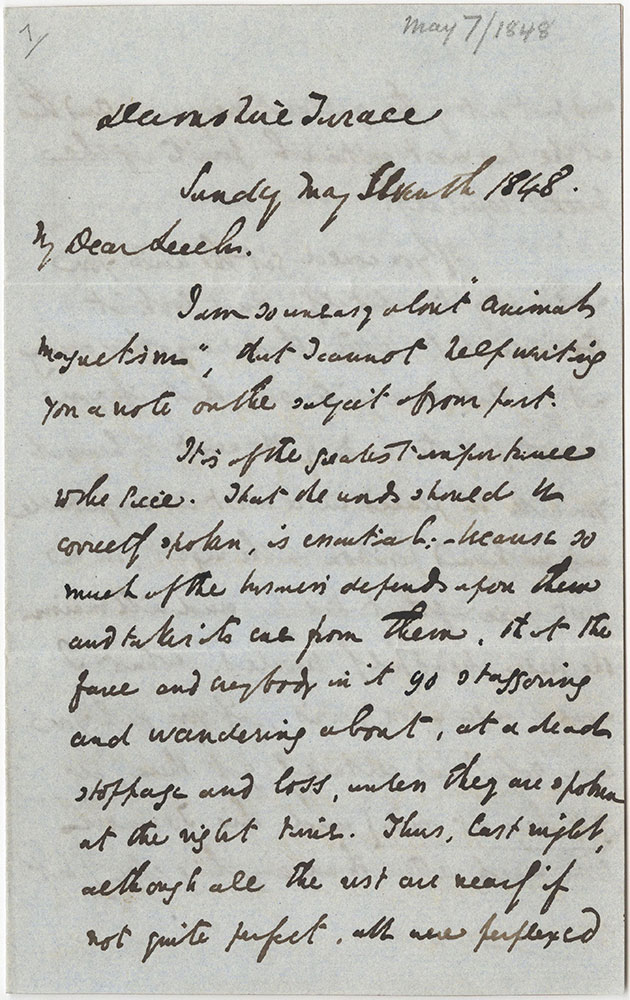 1/
May 7/1848
Devonshire Terrace
Sunday May Seventh 1848.
My Dear Leech.
I am so uneasy about "Animal
Magnetism", that I cannot help writing
you a note on the subject of your part.
It is of the greatest importance
to the piece. That the words should be
correctly spoken, is essential: - because so
much of the business depends upon them
and takes its cue from them, that the
farce and everybody in it go staggering
and wandering about, at a dead
stoppage and loss, unless they are spoken
at the right time. Thus, last night,
although all the rest are nearly if
not quite perfect, all were perplexed